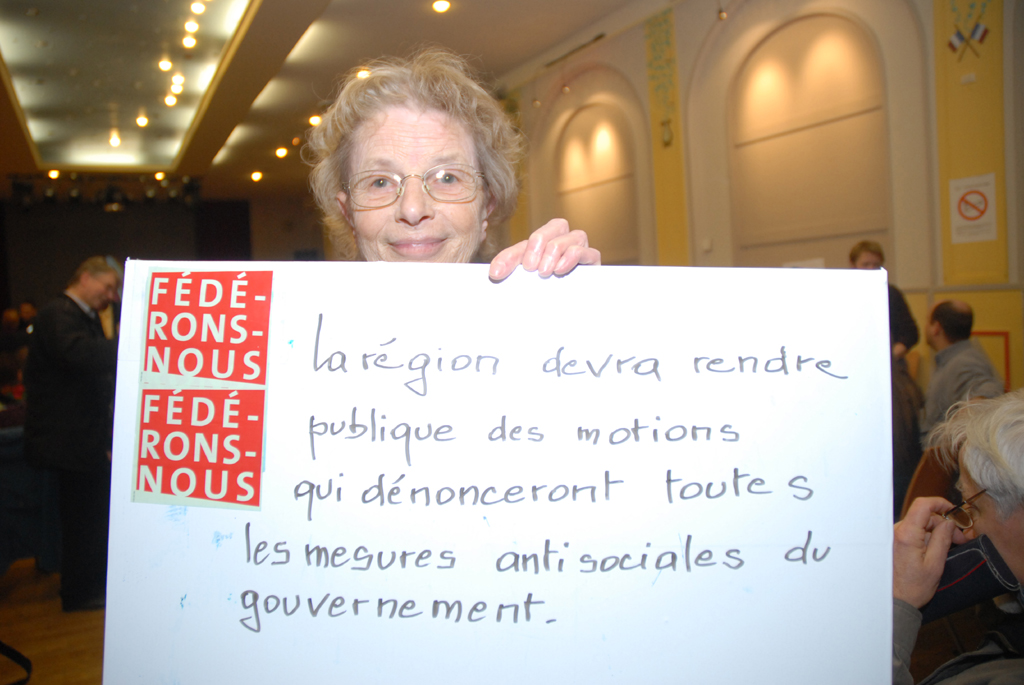 FÉDÉ-
RONS-
NOUS
FÉDÉ-
RONS-
NOUS
La région devra rendre
publique des motions
qui dénonceront toutes
les mesures antisociales du
gouvernement.